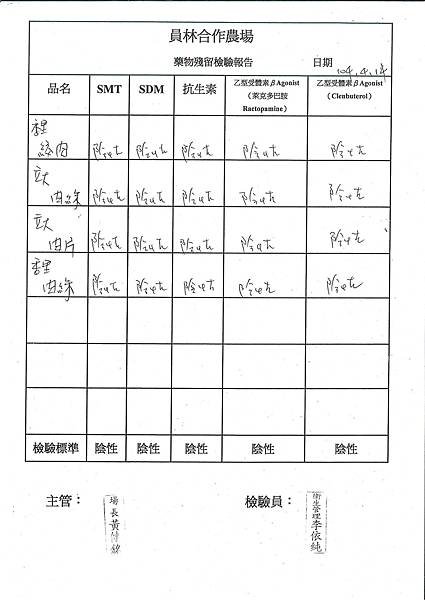 員林合作農場
藥物殘留檢驗報告 日期 104.4.14
品名 SMT SDM 抗生素 乙型受體素βAgonist (萊克多巴胺 Ractopamine) 乙型受體素βAgonist (Clenbuterol)
絞肉 陰性 陰性 陰性 陰性 陰性
肉絲 陰性 陰性 陰性 陰性 陰性
肉片 陰性 陰性 陰性 陰性 陰性
肉絲 陰性 陰性 陰性 陰性 陰性
檢驗標準 陰性 陰性 陰性 陰性 陰性
主管： 場長黃 檢驗員： 衛生管理李依純